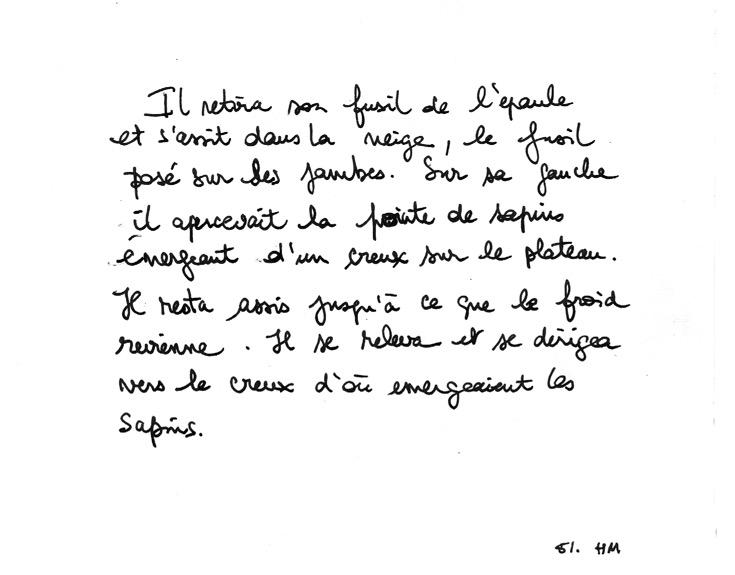 Il retira son fusil de l'épaule
et s'assit dans la neige, le fusil
posé sur ses jambes. Sur sa gauche
il apercevait la pointe de sapins
émergeant d'un creux sur le plateau.
Il resta assis jusqu'à ce que le froid
revienne. Il se releva et se dirigea
vers le creux d'où emergeaient les
sapins.
51. HM